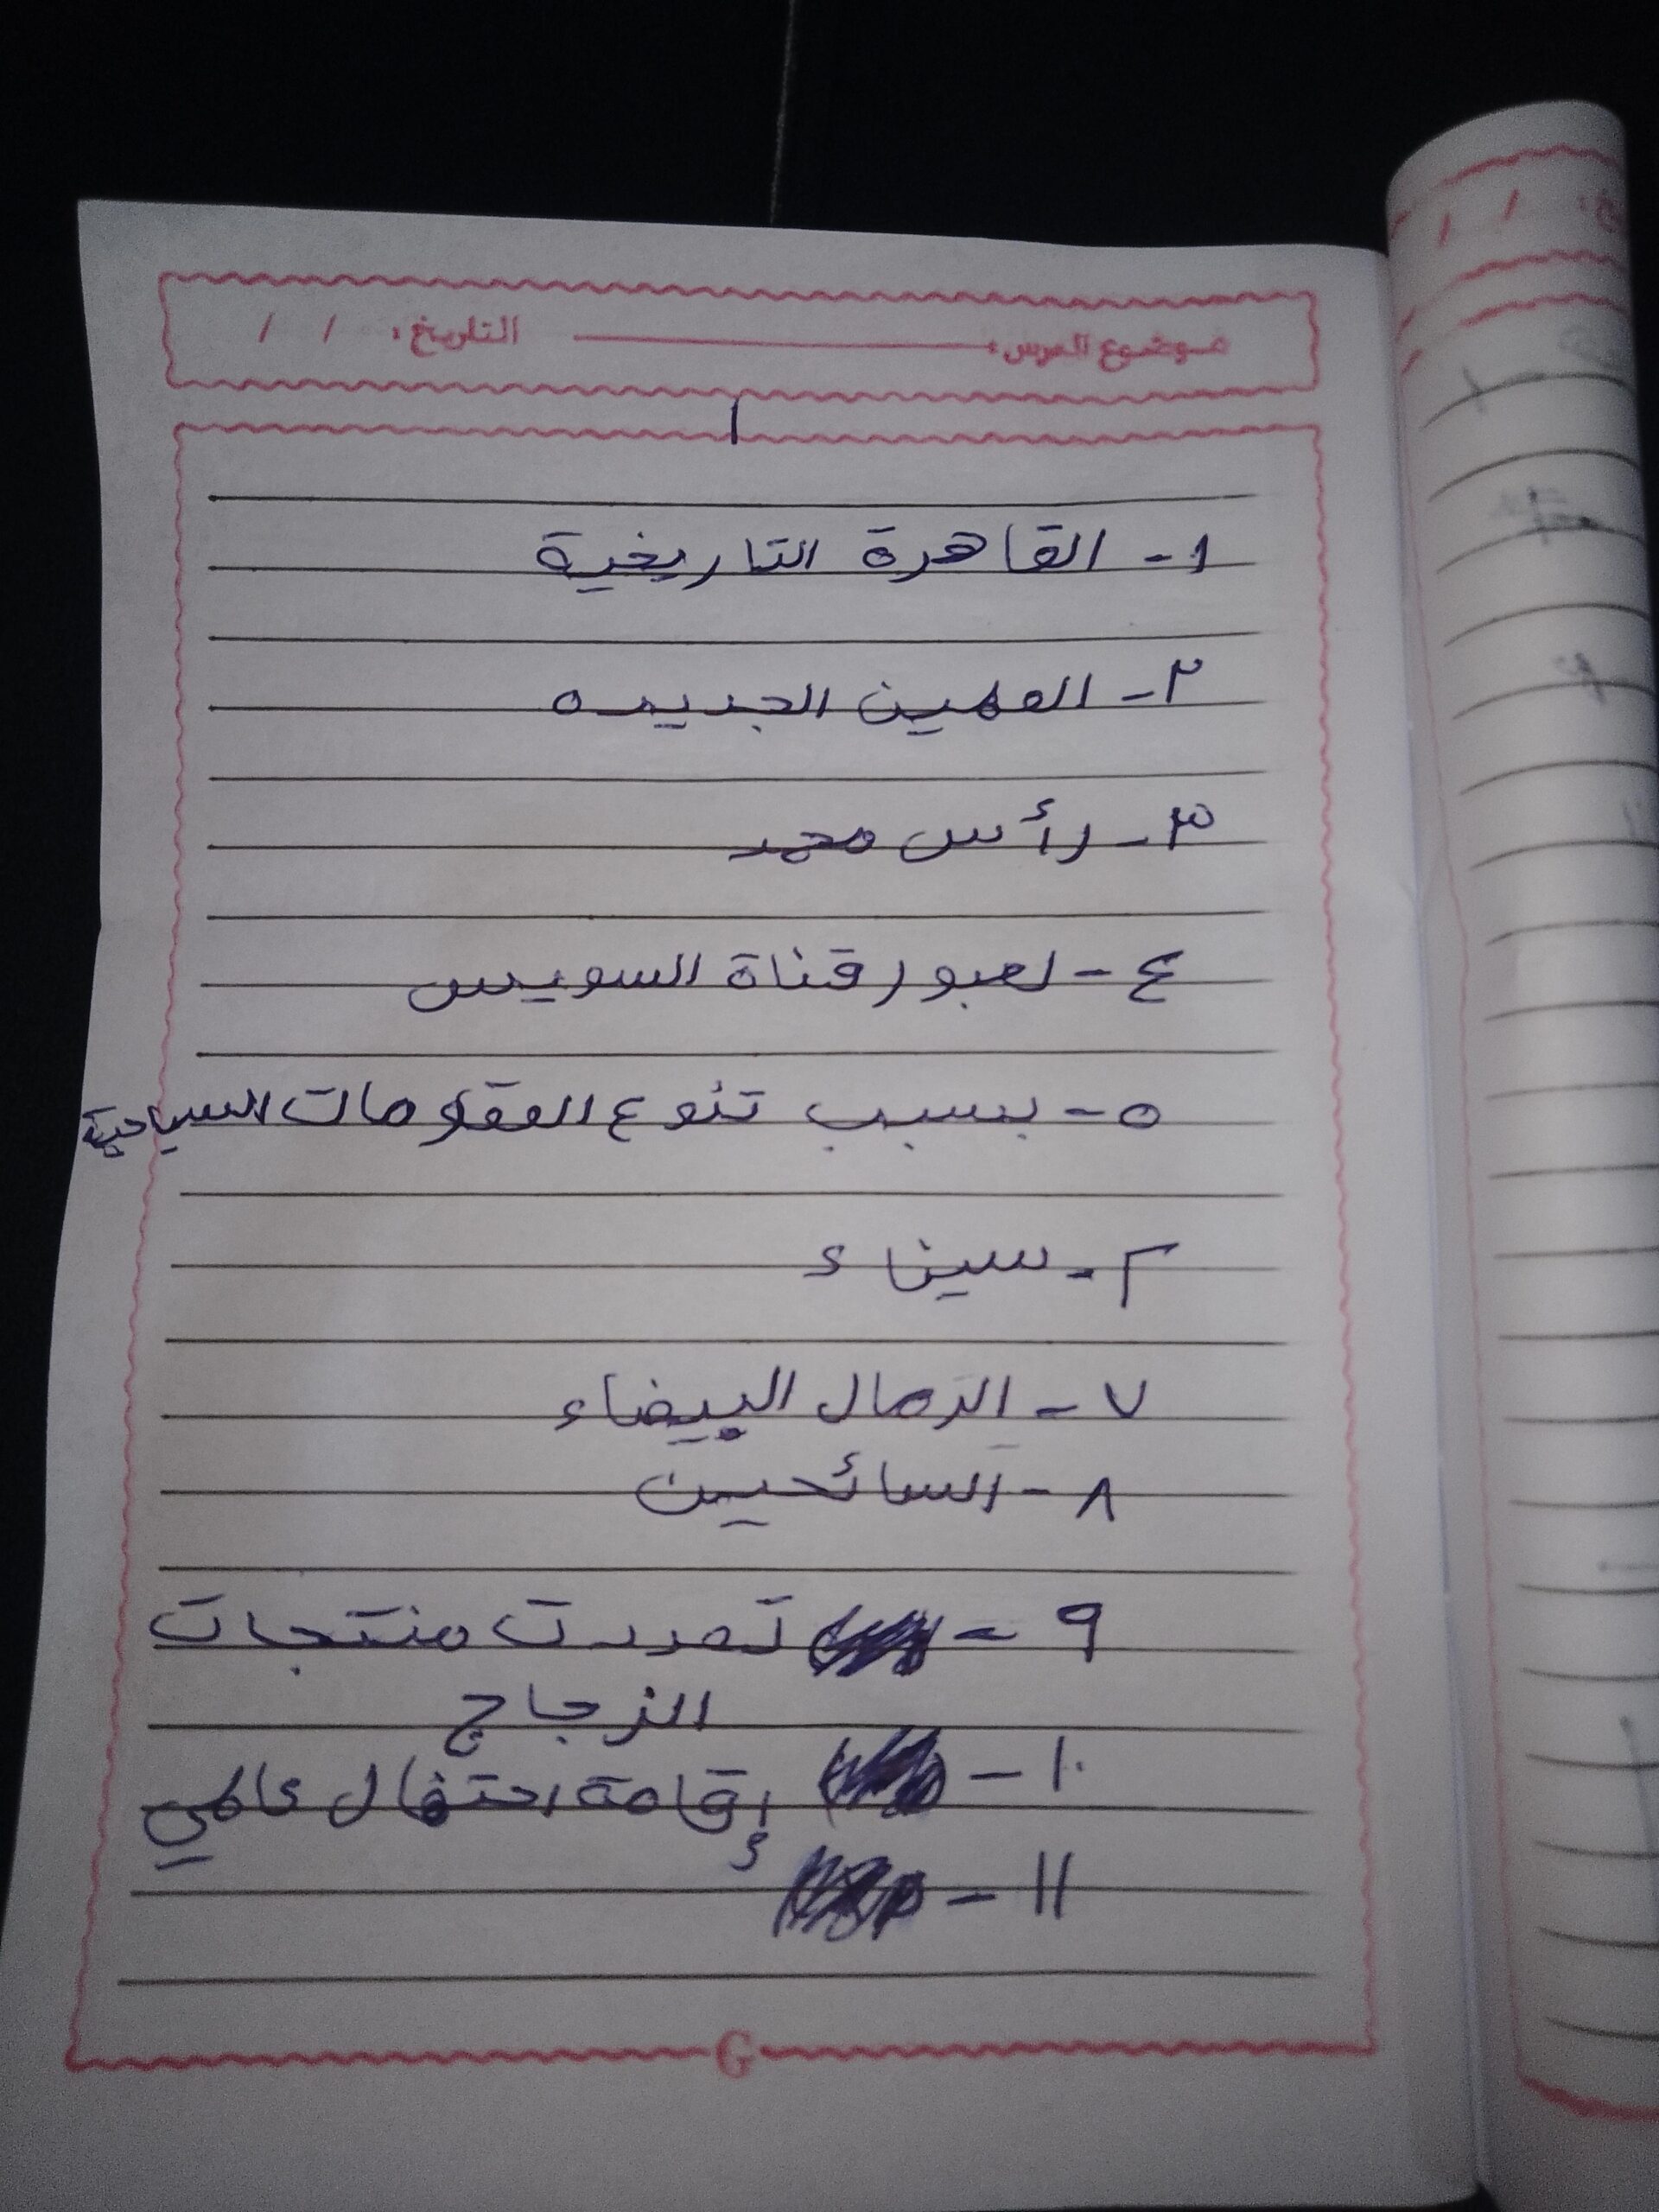 موضوع الدرس: التاريخ: / /
١- القاهرة التاريخية
٢- العلمين الجديده
٣- رأس محمد
٤- لعبور قناة السويس
٥- بسبب تنوع المقومات السياحية
٦- سيناء
٧- الرمال البيضاء
٨- السائحين
٩- تعددت منتجات
الزجاج
١٠- إقامة احتفال عالمي
١١-
G